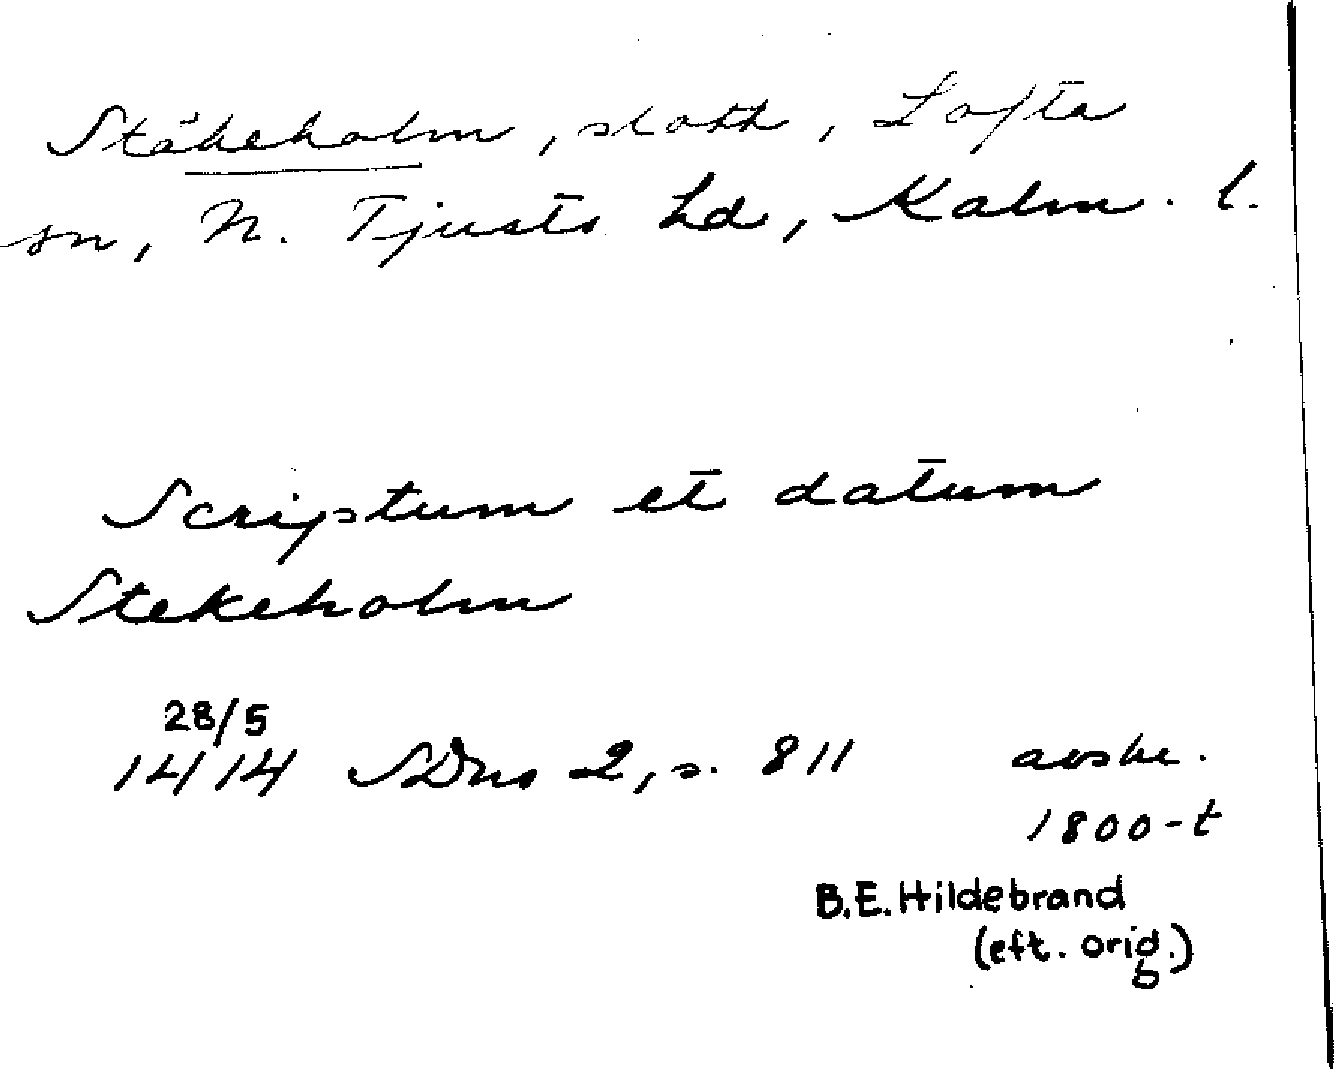 Stäkeholm, slott, Lofta
sn, N. Tjusts hd, Kalm. l.
Scriptum et datum
Stekeholm
28/5
1414 SDns 2, s. 811 avskr.
1800-t
B.E. Hildebrand
(eft. orig.)